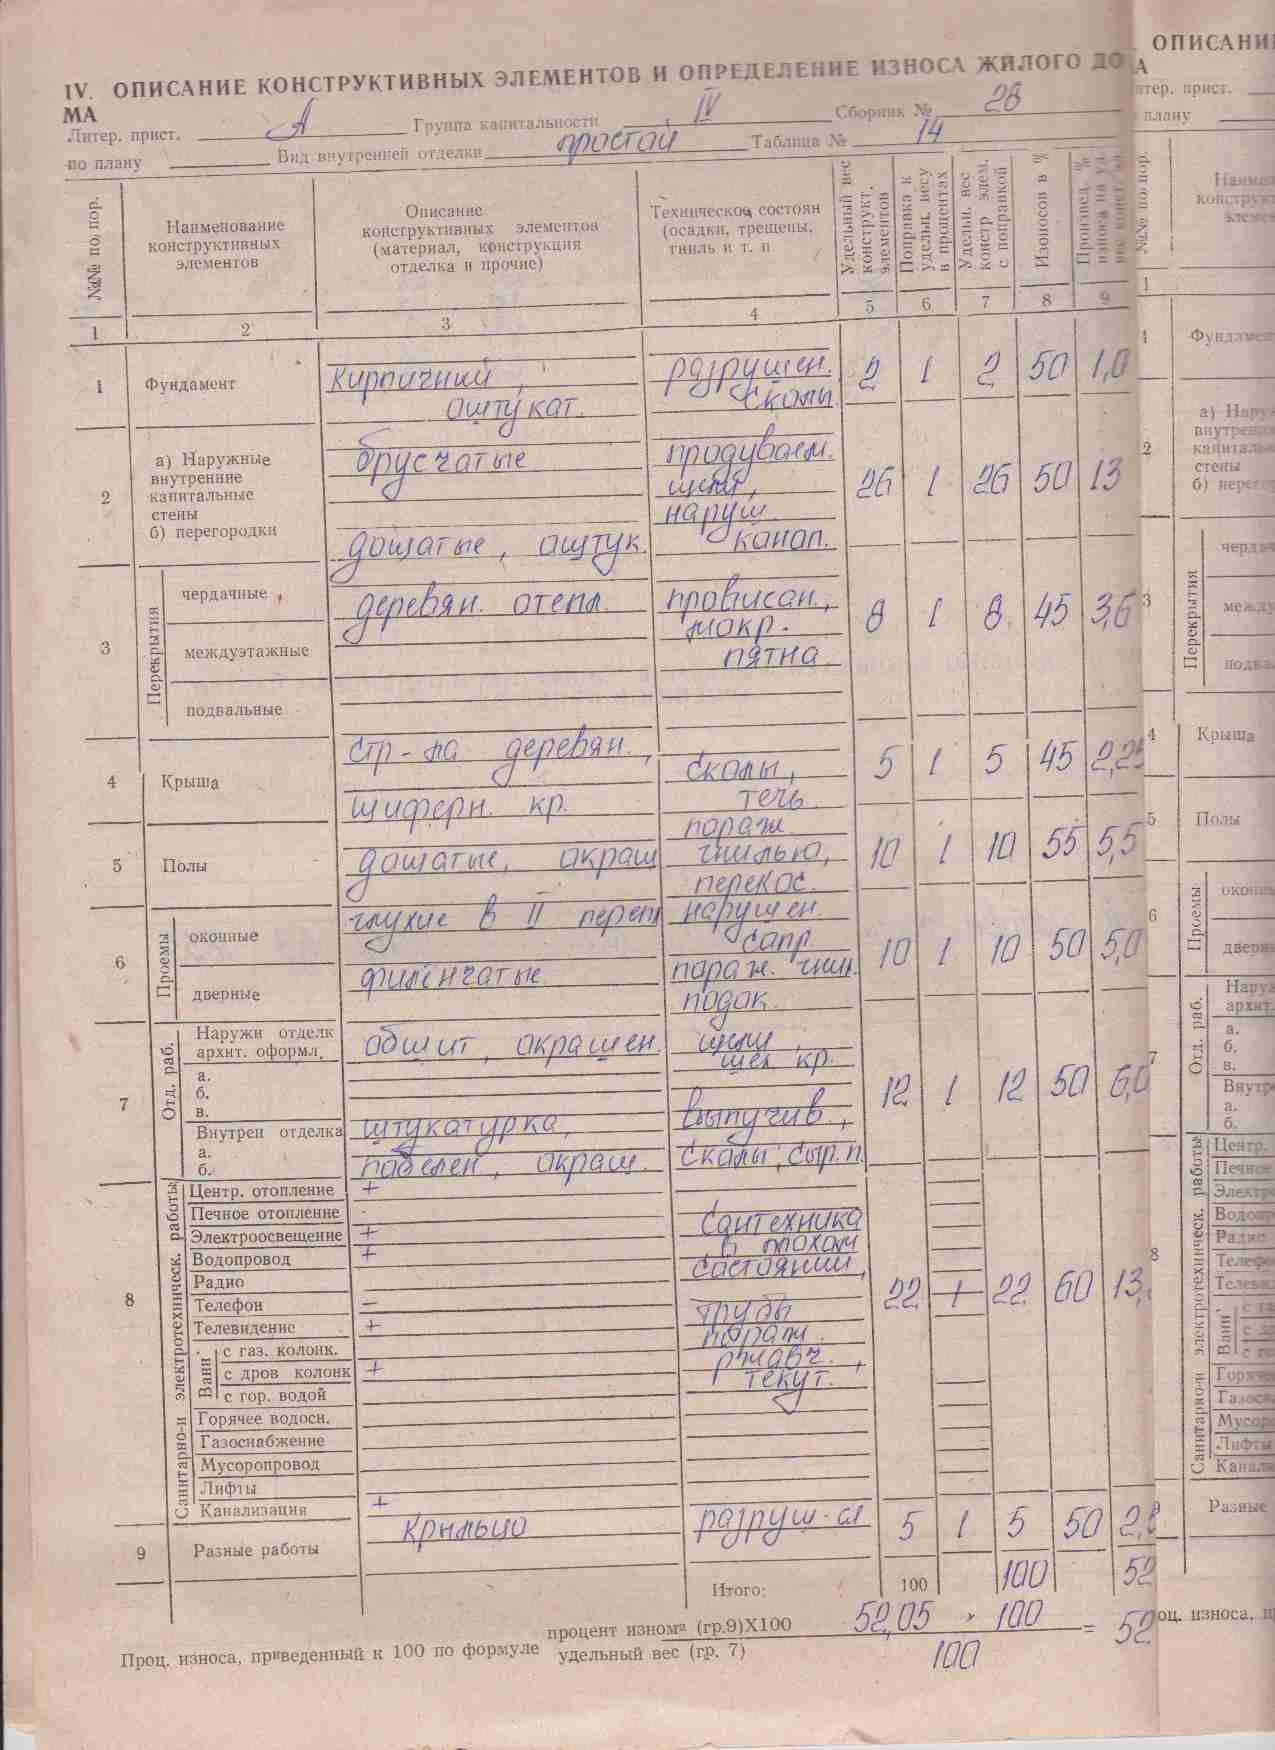 IV. ОПИСАНИЕ КОНСТРУКТИВНЫХ ЭЛЕМЕНТОВ И ОПРЕДЕЛЕНИЕ ИЗНОСА ЖИЛОГО ДО
МА
Литер. прист. А Группа капитальности IV Сборник № 28
по плану Вид внутренней отделки простой Таблица № 14
№№ по пор.
Наименование конструктивных элементов
Описание конструктивных элементов (материал, конструкция отделка и прочие)
Техническое состоян (осадки, трещены, гниль и т. п
Удельный вес конструкт. элементов
Поправка к удельн. весу в процентах
Удельн. вес констр элем. с поправкой
Изоносов в %
1 2 3 4 5 6 7 8 9
1 Фундамент Кирпичний, разрушен. 2 1 2 50 1,0
оштукат. сколы
2 а) Наружные внутренние капитальные стены брусчатые продуваем. 26 1 26 50 13
щели, наруш.
б) перегородки дощатые, оштук. коноп.
3 Перекрытия
чердачные деревян. отепл. провисан, 8 1 8 45 3,6
мокр.
междуэтажные пятна
подвальные
4 Крыша стр-ла деревян., сколы, 5 1 5 45 2,25
шиферн. кр. течь
5 Полы дощатые, окраш пораж. гнилью, перекос. 10 1 10 55 5,5
6 Проемы
оконные глухие в II переп нарушен. сопр. 10 1 10 50 5,0
дверные филенчатые пораж. гнил. подок.
7 Отд. раб.
Наружн отделк архит. оформл. обшит, окрашен. щели, щел кр. 12 1 12 50 6,0
а.
б.
в.
Внутрен отделка штукатурка, выпучив.,
а.
б. побелен, окраш. сколы, сыр. п
8 Санитарно-и электротехническ. работы 22 1 22 60 13,
Центр. отопление +
Печное отопление -
Электроосвещение + сантехника
Водопровод + в плохом
Радио состоянии,
Телефон - трубы
Телевидение + пораж.
Ванн с газ. колонк. ржавч.,
с дров колонк + текут.
с гор. водой
Горячее водосн.
Газоснабжение
Мусоропровод
Лифты
Канализация +
9 Разные работы крыльцо разруш-ся 5 1 5 50 2,
Итого: 100 100 52
процент износа (гр.9)X100 52,05 · 100
Проц. износа, приведенный к 100 по формуле = 52
удельный вес (гр. 7) 100
ОПИСАНИ
А
тер. прист.
плану
№№ по пор.
1
1 Фундамент
2 а) Нару
внутренн
капиталь
стены
б) перегор
3 Перекрытия
черда
между
подва
4 Крыша
5 Полы
6 Проемы
оконн
дверн
7 Отд. раб.
Наруж
архит.
а.
б.
в.
Внутр
а.
б.
8 Санитарно-и электротехническ. работы
Центр.
Печное
Электро
Водопро
Радио
Телефон
Телеви
Ванн
с га
с
с го
Горяче
Газосна
Мусоро
Лифты
Канали
9 Разные
оц. износа, п